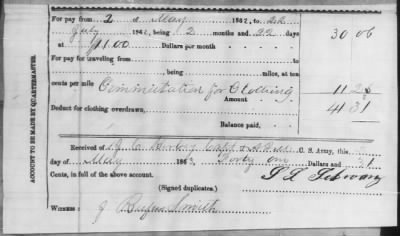 For pay from 2 of May 1862, to 22
July 1862, being 2 months and 22 days 30 06
at $11.00 Dollars per month
For pay for traveling from
, being miles, at ten
cents per mile Commutation for Clothing 11 25
Amount 41 31
Deduct for clothing overdrawn,
Balance paid,
ACCOUNT TO BE MADE BY QUARTERMASTER.
Received of C. Capt & A. Q. M. C. S. Army, this
day of May 1863, Forty one Dollars and 31
Cents, in full of the above account.
(Signed duplicates.)
Witness J Rufus Smith